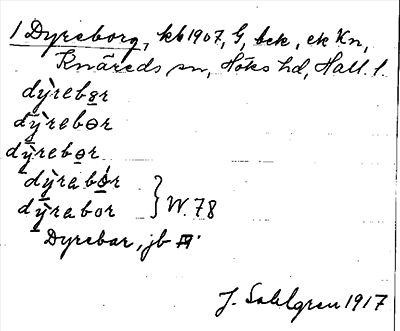 1 Dyreborg, kb 1907, G, bek, ek Kn,
Knäreds sn, Höks hd, Hall. l.
dỳrebɵr
dỳrebɵr
dỳrebɵr
dỳrabɵ́r
dỳrabor } W. 78
Dyrebar, jb
J. Sahlgren 1917